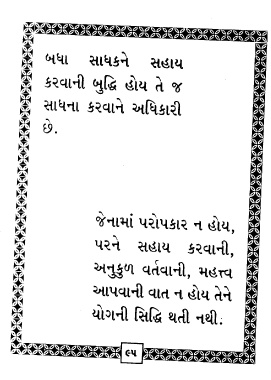 બધા સાધકને સહાય
કરવાની બુદ્ધિ હોય તે જ
સાધના કરવાને અધિકારી
છે.
જેનામાં પરોપકાર ન હોય,
પરને સહાય કરવાની,
અનુકુળ વર્તવાની, મહત્ત્વ
આપવાની વાત ન હોય તેને
યોગની સિદ્ધિ થતી નથી.
૯૫